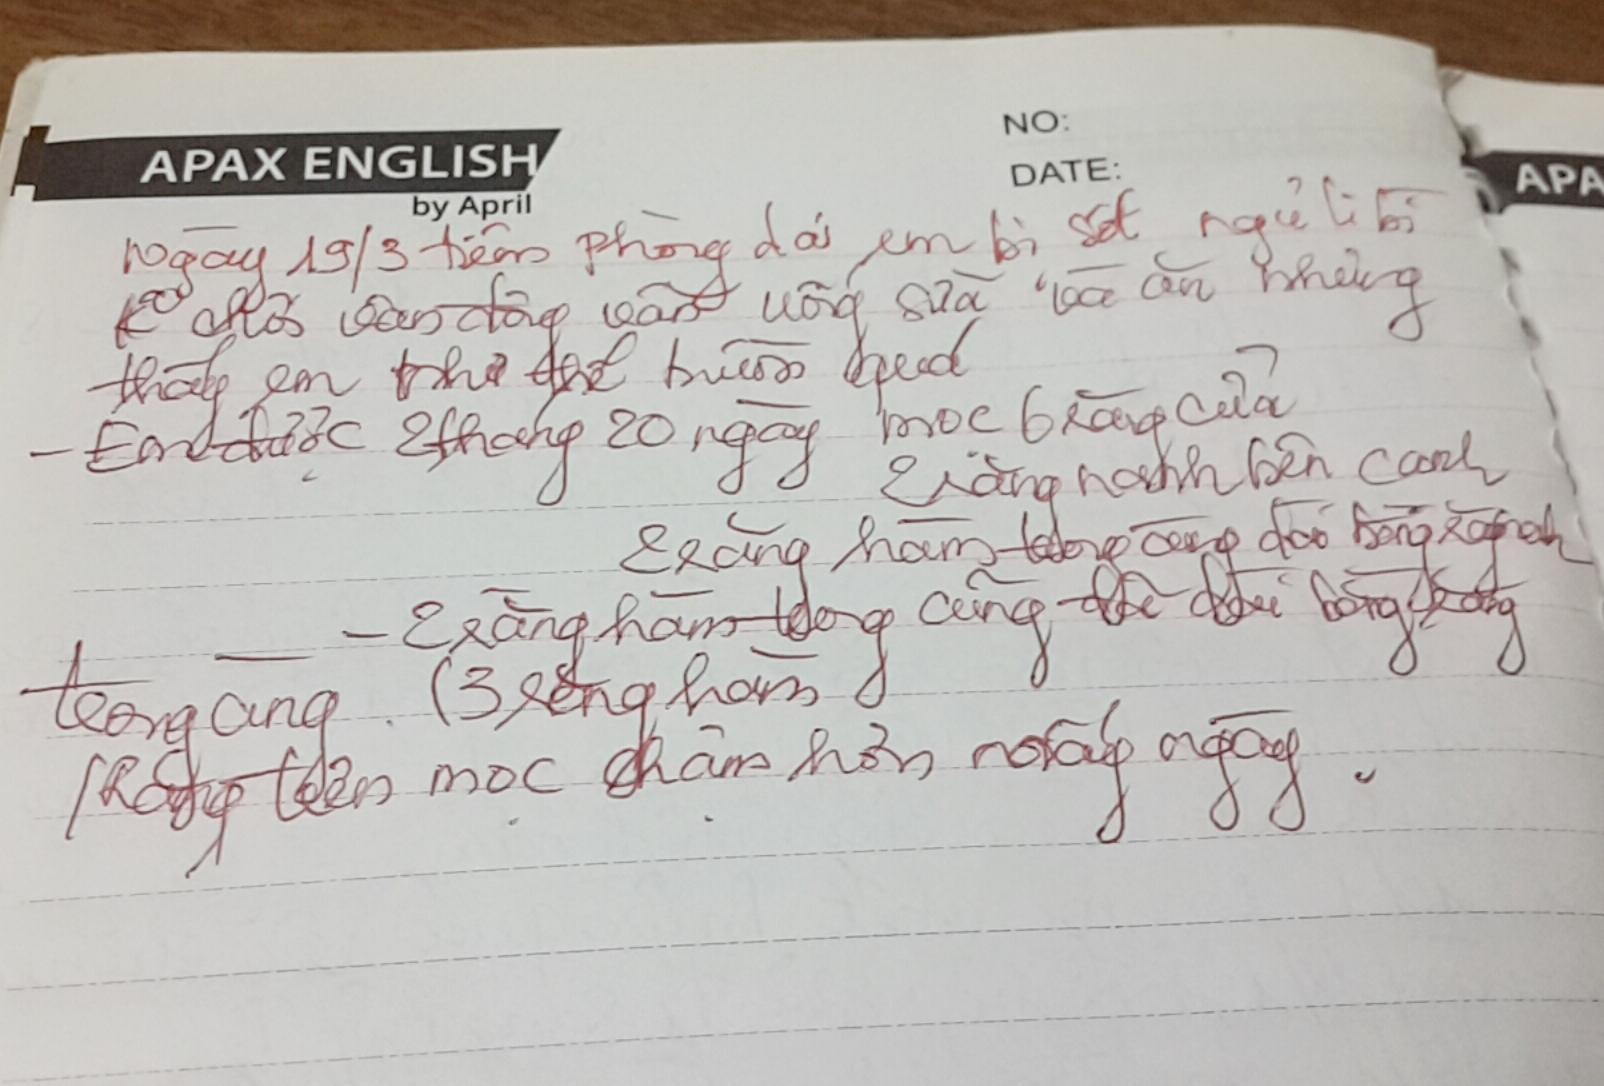 NO:
APAX ENGLISH
DATE:
APA
by April
Ngày 19/3 tiêm phòng dại em bị sốt ngủ li bì
K° chơi vận động vẫn uống sữa và ăn nhưng
thấy em như thế buồn quá
- Em được 2 tháng 20 ngày mọc 6 răng cửa
2 răng nanh bên cạnh
2 răng hàm trong cùng đối
- 2 răng hàm trong cùng
trong cùng. (3 răng hàm
Răng trên mọc chậm hơn mấy ngày.